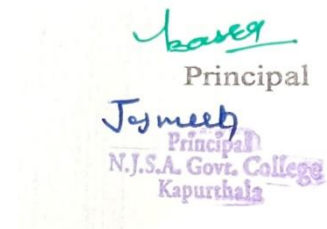 Principal
Principal
N.J.S.A. Govt. College
Kapurthala